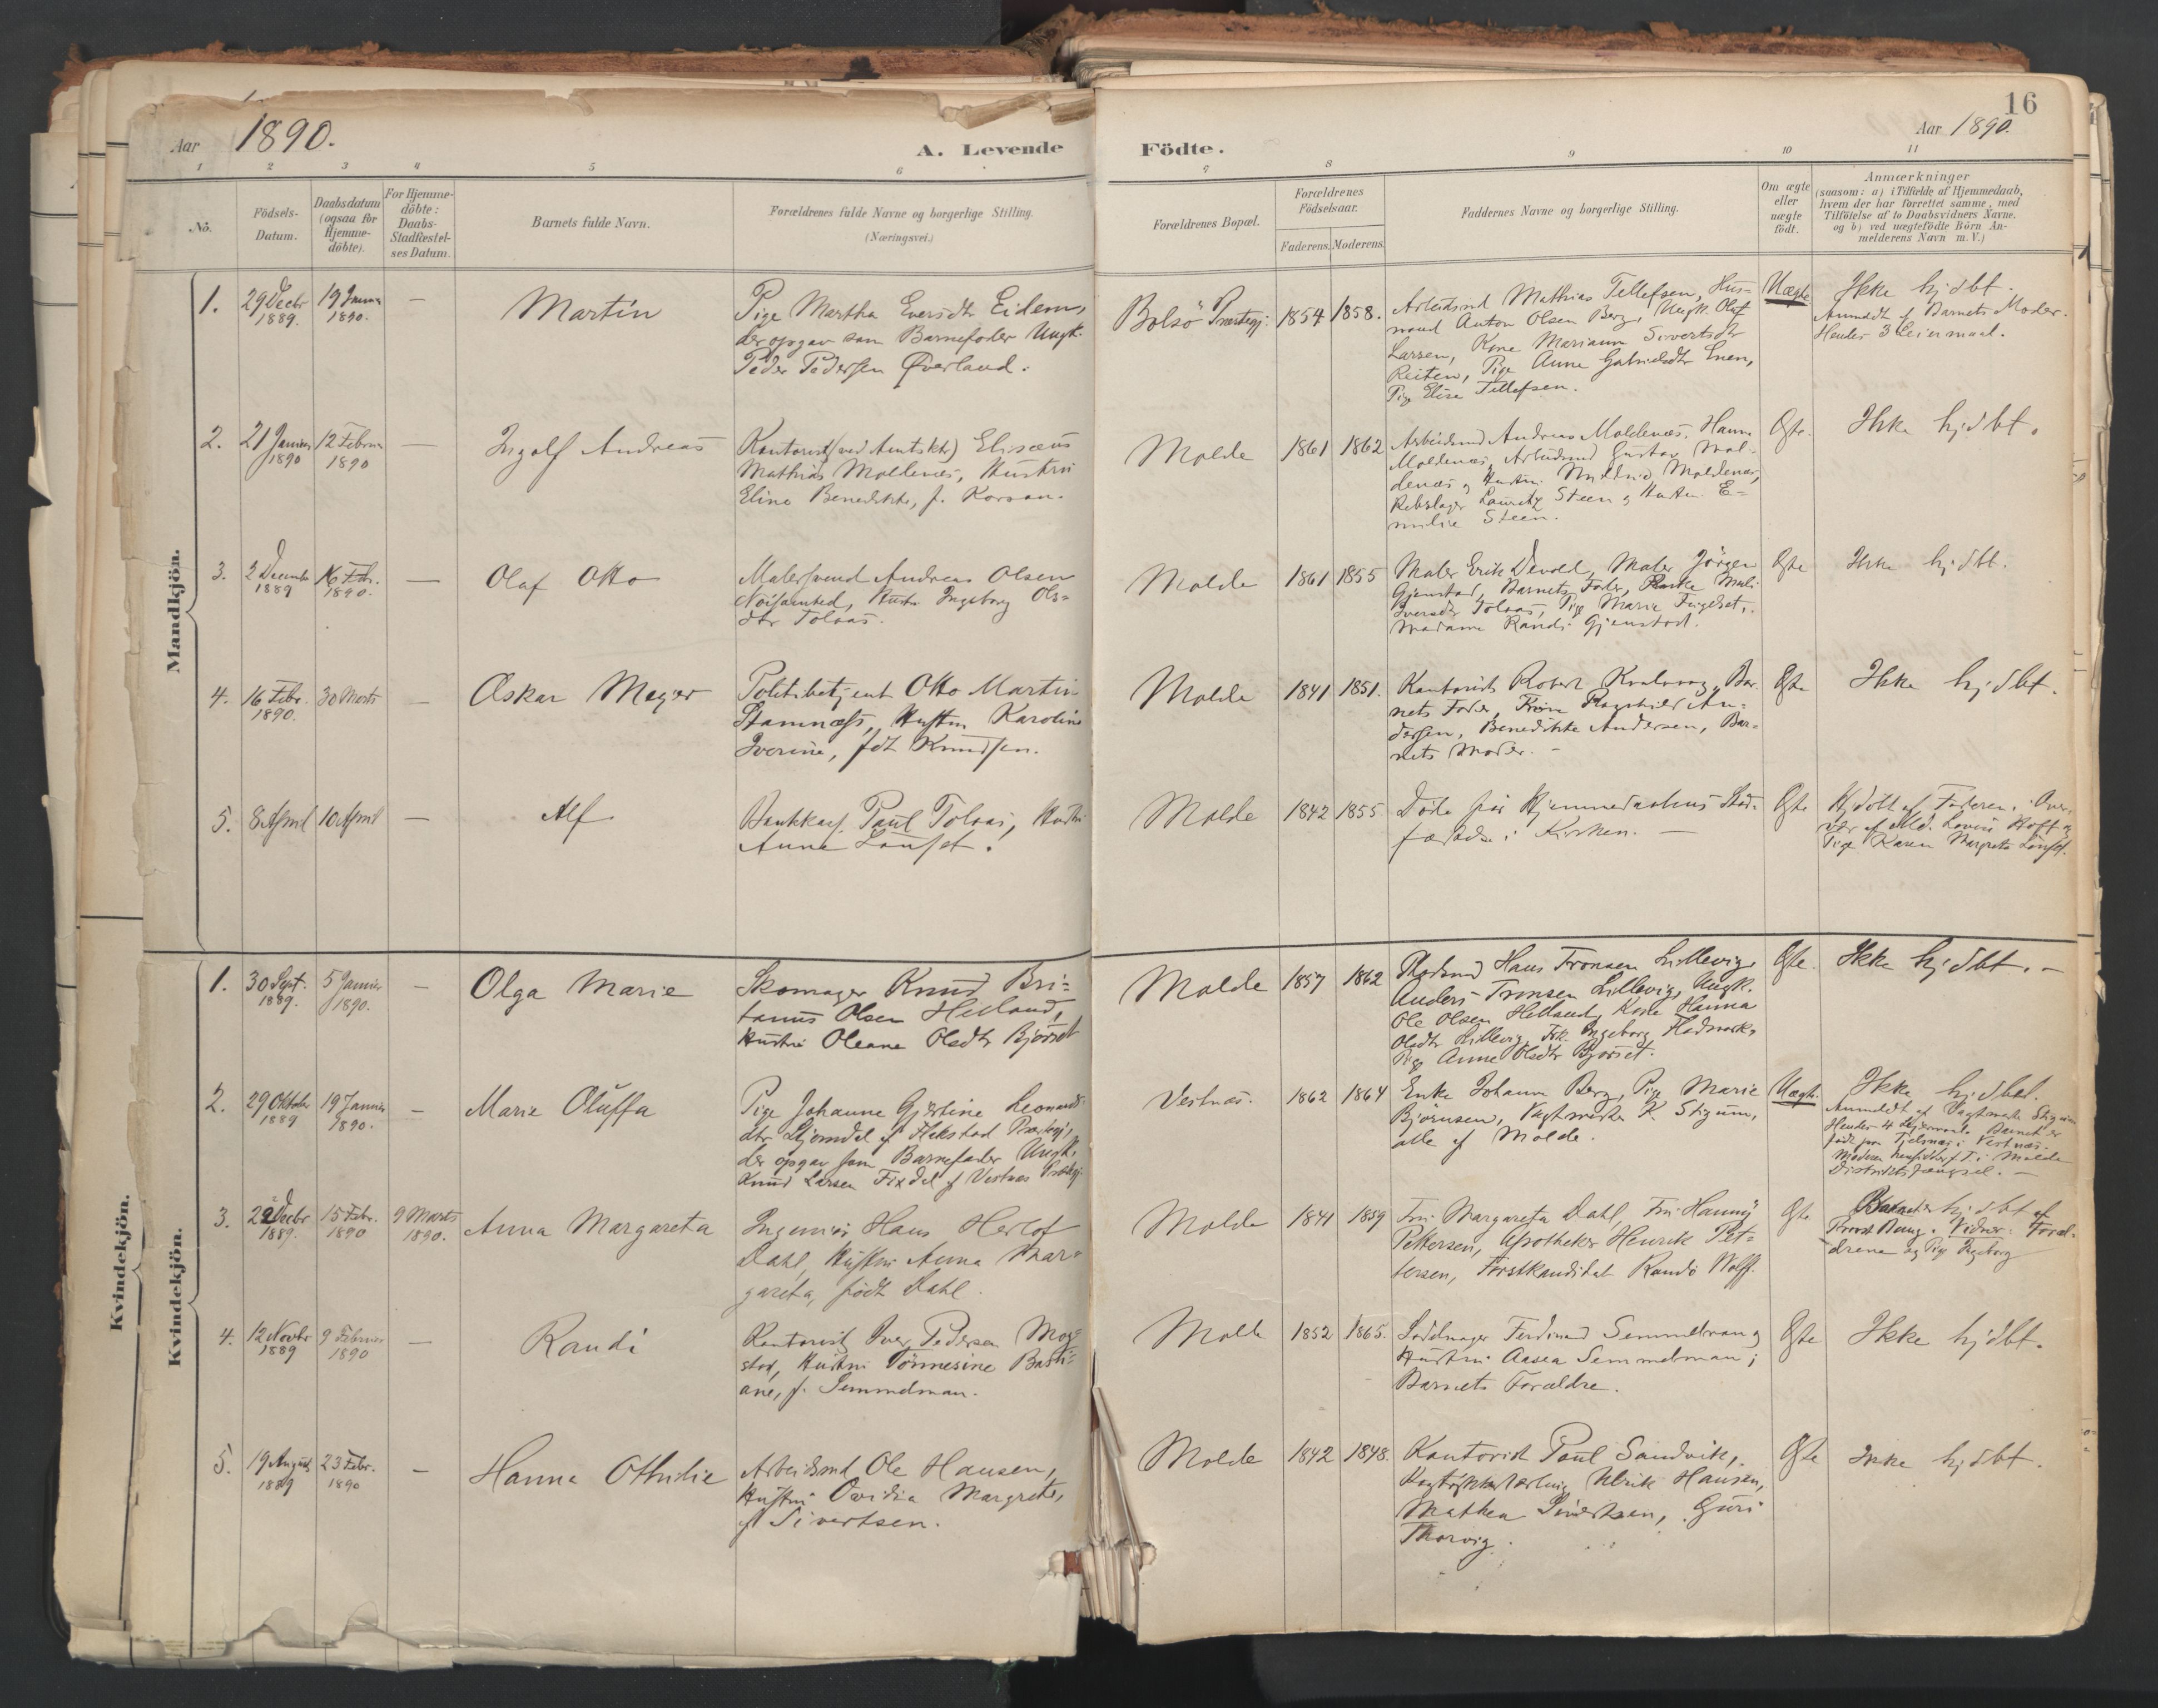 16
Aar 1890.
A. Levende Födte.
Aar 1890.
1 2 3 4 5 6 7 8 9 10 11
No.
Födsels-
Datum.
Daabsdatum
(ogsaa for
Hjemme-
döbte).
For Hjemme-
döbte:
Daabs-
Stadfæstel-
ses Datum.
Barnets fulde Navn.
Forældrenes fulde Navne og borgerlige Stilling.
(Næringsvei.)
Forældrenes Bopæl.
Forældrenes
Födselsaar.
Faderens. Moderens.
Faddernes Navne og borgerlige Stilling.
Om ægte
eller
uægte
födt.
Anmærkninger
(saasom: a) i Tilfælde af Hjemmedaab,
hvem der har forrettet samme, med
Tilföielse af to Daabsvidners Navne.
og b) ved uægtefödte Börn An-
melderens Navn m. V.)
Mandkjön.
1.
29 Decbr
1889.
19 Januar
1890.
—
Martin
Pige Martha Eversdtr Eidem,
der opgav som Barnefader Ungk.
Peder Pedersen Øverland.
Bolsö Præstegj:
1854 1858.
Arbeidsmd Mathias Tellefsen, Hus-
mand Anton Olsen Berg, Ungk. Olaf
Larsen, Kone Marianne Sivertsdtr
Reiten, Pige Anne Gabrielsdtr Enen,
Pige Elise Tellefsen.
Uægte
Ikke hjdbt.
Anmeldt af Barnets Moder.
Hendes 3die Leiermaal.
2.
21 Januar
1890
12 Februar
1890
—
Ingolf Andreas
Kontorist (ved Amtsktr) Elisæus
Mathias Moldenæs, Hustru
Eline Benedikte, f. Korsan.
Molde
1861 1862
Arbeidsmd Andreas Moldenæs, Hanna
Moldenæs, Arbeidsmd Gustav Mol-
denæs og Hustru Moldenæs,
Rebslager Lauritz Steen og Hustru E-
milie Steen.
Ægte.
Ikke hjdbt.
3.
2 Decembr
1889
16 Febr.
1890.
—
Olaf Otto
Malersvend Andreas Olsen
Nöisomhed, Hustr. Ingeborg Ols-
dtr Tolaas.
Molde
1861 1855
Maler Erik Devold, Maler Jörgen
Gjenstad, Barnets Fader, Mali
Iversdtr Tolaas, Pige Marie Frigdset,
Madame Randi Gjenstad.
Ægte
Ikke hjdbt.
4.
16 Febr.
1890.
30 Marts
—
Oskar Meyer
Politibetjent Otto Martin
Stamnæss, Hustru Karoline
Iverine, fdt Knudsen.
Molde
1841 1851.
Kontorist Robert Kvalvaag, Bar-
nets Fader, Ragnhild An-
dersen, Benedikte Andersen, Bar-
nets Moder. —
Ægte
Ikke hjdbt.
5.
8 April
10 April
—
Alf
Bankkass. Paul Tolaas, Hustru
Anne Lonset.
Molde
1842 1855.
Döde för Hjemmedaabens Stad-
fæstelse i Kirken. —
Ægte
Hjdöbt af Faderen. Over-
vær. af Md. Lovise Hoft og
Pige Karen Margrete Lonset.
Kvindekjön.
Kvindekjön.
1.
30 Sept.
1889.
5 Januar
1890.
—
Olga Marie
Skomager Knud Bri-
tanus Olsen Helland,
Hustru Oleane Olsdtr Bjørset
Molde
1857 1862
Hans Tronsen Lillevig,
Anders Tronsen Lillevig, Ungk.
Ole Olsen Helland, Kone Hanna
Olsdtr Lillevig, Frk Ingeborg
Pige Anne Olsdtr Bjørset.
Ægte.
Ikke hjdbt. —
2.
29 Oktober
1889
19 Januar
1890.
—
Marie Oluffa
Pige Johanne Gjertine Leonards-
dtr af Præstegj.,
der opgav som Barnefader Ungk.
Knud Larsen Fixdel af Vestnæs Præstegj.
Vestnæs.
1862 1864
Enke Johanne Berg, Pige Marie
Björnsen, Vagtmester K. Stigum,
alle af Molde.
Uægte.
Ikke hjdbt.
Anmeldt af Vagtmester Stigum
Hendes 4 Leiermaal. Barnet er
födt paa Tjelsnæs i Vestnæs.
Moderen i Molde
Distriktsfængsel. —
3.
22 Decbr
1889.
15 Febr.
1890
9 Marts
1890.
Anna Margareta
Ingeniör Hans Herlof
Dahl, Hustru Anna Mar-
gareta, födt Dahl.
Molde
1841 1859
Fru Margareta Dahl, Fru Hanny
Pettersen, Apotheker Henrik Pet-
tersen, Forstkandidat Randö Wolff.
Ægte
Barnet er hjdbt af
Provst Vidner: Foræl-
drene og Pige Ingeborg
4.
12 Novbr
1889
9 Februar
1890
—
Randi
Kontorist Iver Pedersen Mog-
stad, Hustru Tönnesine Basti-
ane, f. Semmelman.
Molde
1852 1865.
Sadelmager Ferdinand Semmelman og
Hustru Aasea Semmelman;
Barnets Forældre.
Ægte
Ikke hjdbt.
5.
19 August
1889
23 Febr.
1890
—
Hanna Othilie
Arbeidsmd Ole Hansen,
Hustru Ovidia Margrete,
f. Sivertsen.
Molde
1842 1848.
Kontorist Paul Sandvik,
Ulrik Hansen,
Mathea Sivertsen, Guri
Thorvig.
Ægte
Ikke hjdbt.